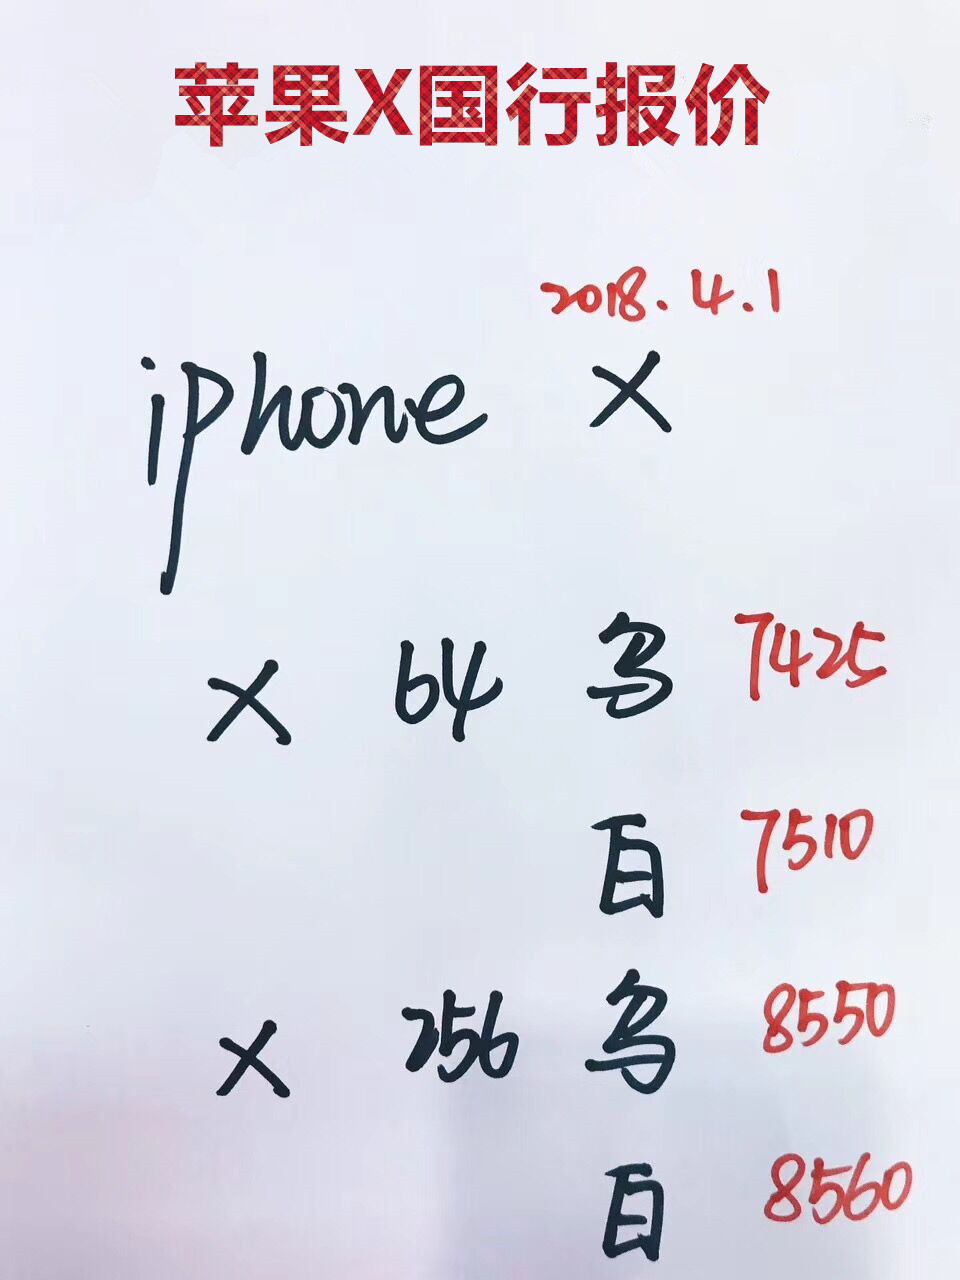 苹果X国行报价
2018.4.1
iphone X
X 64 乌 7425
白 7510
X 256 乌 8550
白 8560